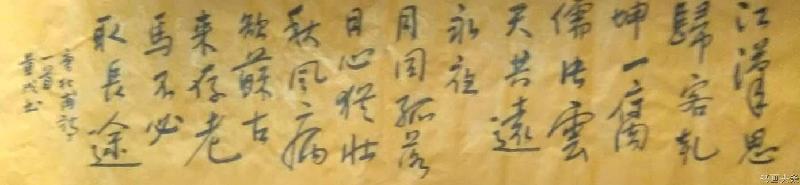 江漢思
歸客乾
坤一腐
儒片雲
天共遠
永夜
月同孤落
日心猶壯
秋風病
欲蘇古
來存老
馬不必
取長途
唐杜甫詩
一首